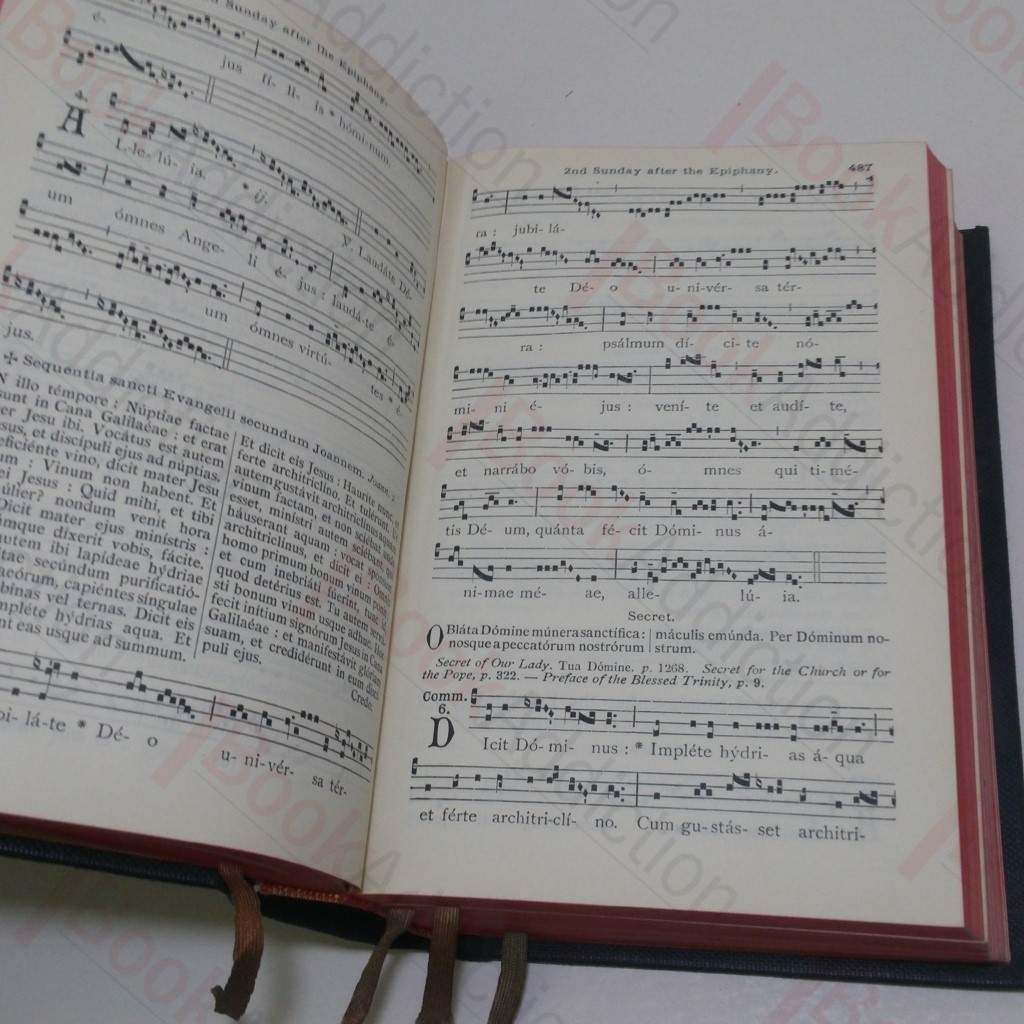 Sunday after the Epiphany.
é-
jus fí- li- is * hóminum.
4.
A
L-le- lú- ia. * ij.
℣. Laudáte Dé-
um ómnes Ange- li é- jus : laudá-te é-
um ómnes virtú- tes * é-
jus.
✠ Sequentia sancti Evangelii secundum Joannem.
N illo témpore : Núptiae factae
sunt in Cana Galilaéae : et erat
er Jesu ibi. Vocátus est autem
sus, et discípuli ejus ad núptias.
eficiénte vino, dicit mater Jesu
um : Vinum non habent. Et
ei Jesus : Quid mihi, et tibi
úlier? nondum venit hora
Dicit mater ejus minístris :
úmque díxerit vobis, fácite.
utem ibi lapídeae hýdriae
itae secúndum purificatió-
aeórum, capiéntes síngulae
bínas vel ternas. Dicit eis
mpléte hýdrias aqua. Et
nt eas usque ad summum.
Et dicit eis Jesus : Hauríte nunc, et
ferte architriclíno. Et tulérunt. Ut
autem gustávit architriclínus aquam
vinum factam, et non sciébat unde
esset, minístri autem sciébant, qui
háuserant aquam : vocat sponsum
architriclínus, et dicit ei : Omnis
homo primum bonum vinum ponit :
et cum inebriáti fúerint, tunc id
quod detérius est. Tu autem servá-
sti bonum vinum usque adhuc. Hoc
fecit inítium signórum Jesus in Cana
Galilaéae : et manifestávit glóriam
suam, et credidérunt in eum discí-
puli ejus.
Credo.
bi- lá-te * Dé- o u- ni-vér- sa tér-
2nd Sunday after the Epiphany. 487
ra : jubi- lá-
te Dé- o u- ni-vér- sa tér-
ra : psálmum dí- ci- te nó-
mi- ni é- jus : vení- te et audí- te,
et narrábo vó- bis, ó- mnes qui ti-mé-
tis Dé- um, quánta fé- cit Dómi- nus á-
ni-mae mé- ae, alle- lú- ia.
Secret.
OBláta Dómine múnera sanctífica :
nosque a peccatórum nostrórum
máculis emúnda. Per Dóminum no-
strum.
Secret of Our Lady. Tua Dómine, p. 1268. Secret for the Church or for
the Pope, p. 322. — Preface of the Blessed Trinity, p. 9.
Comm.
6.
D
Icit Dó- mi- nus : * Impléte hýdri- as á- qua
et férte architri-clí- no. Cum gu-stás- set architri-
BookAddiction